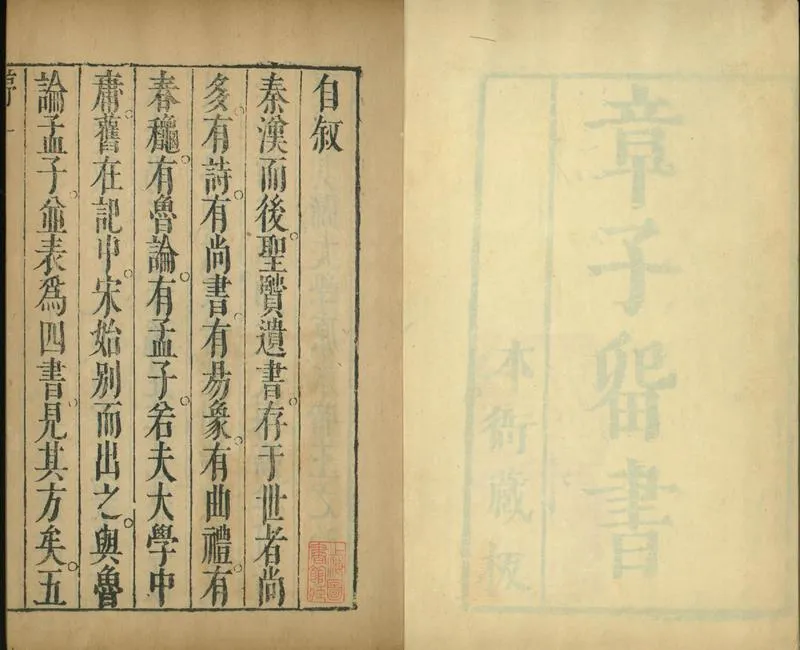 章子畱書
本衙藏板
自叙
秦漢而後。聖贒遺書。存于世者尚
多。有詩。有尚書。有易象。有曲禮。有
春龝。有魯論。有孟子。若夫大學中
庸。舊在記中。宋始別而出之。與魯
論孟子。並表爲四書。見其方矣。五
上海圖
書館藏